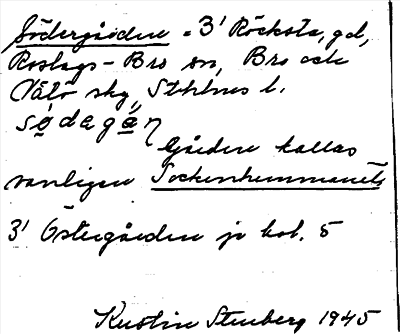 Södergården = 3¹ Röcksta, gd,
Roslags-Bro sn, Bro och
Vätö skg, Sthlms l.
södagán
Gården kallas
vanligen Sockenhemmanet
3¹ Östergården jr kol. 5
Kerstin Stenberg 1945